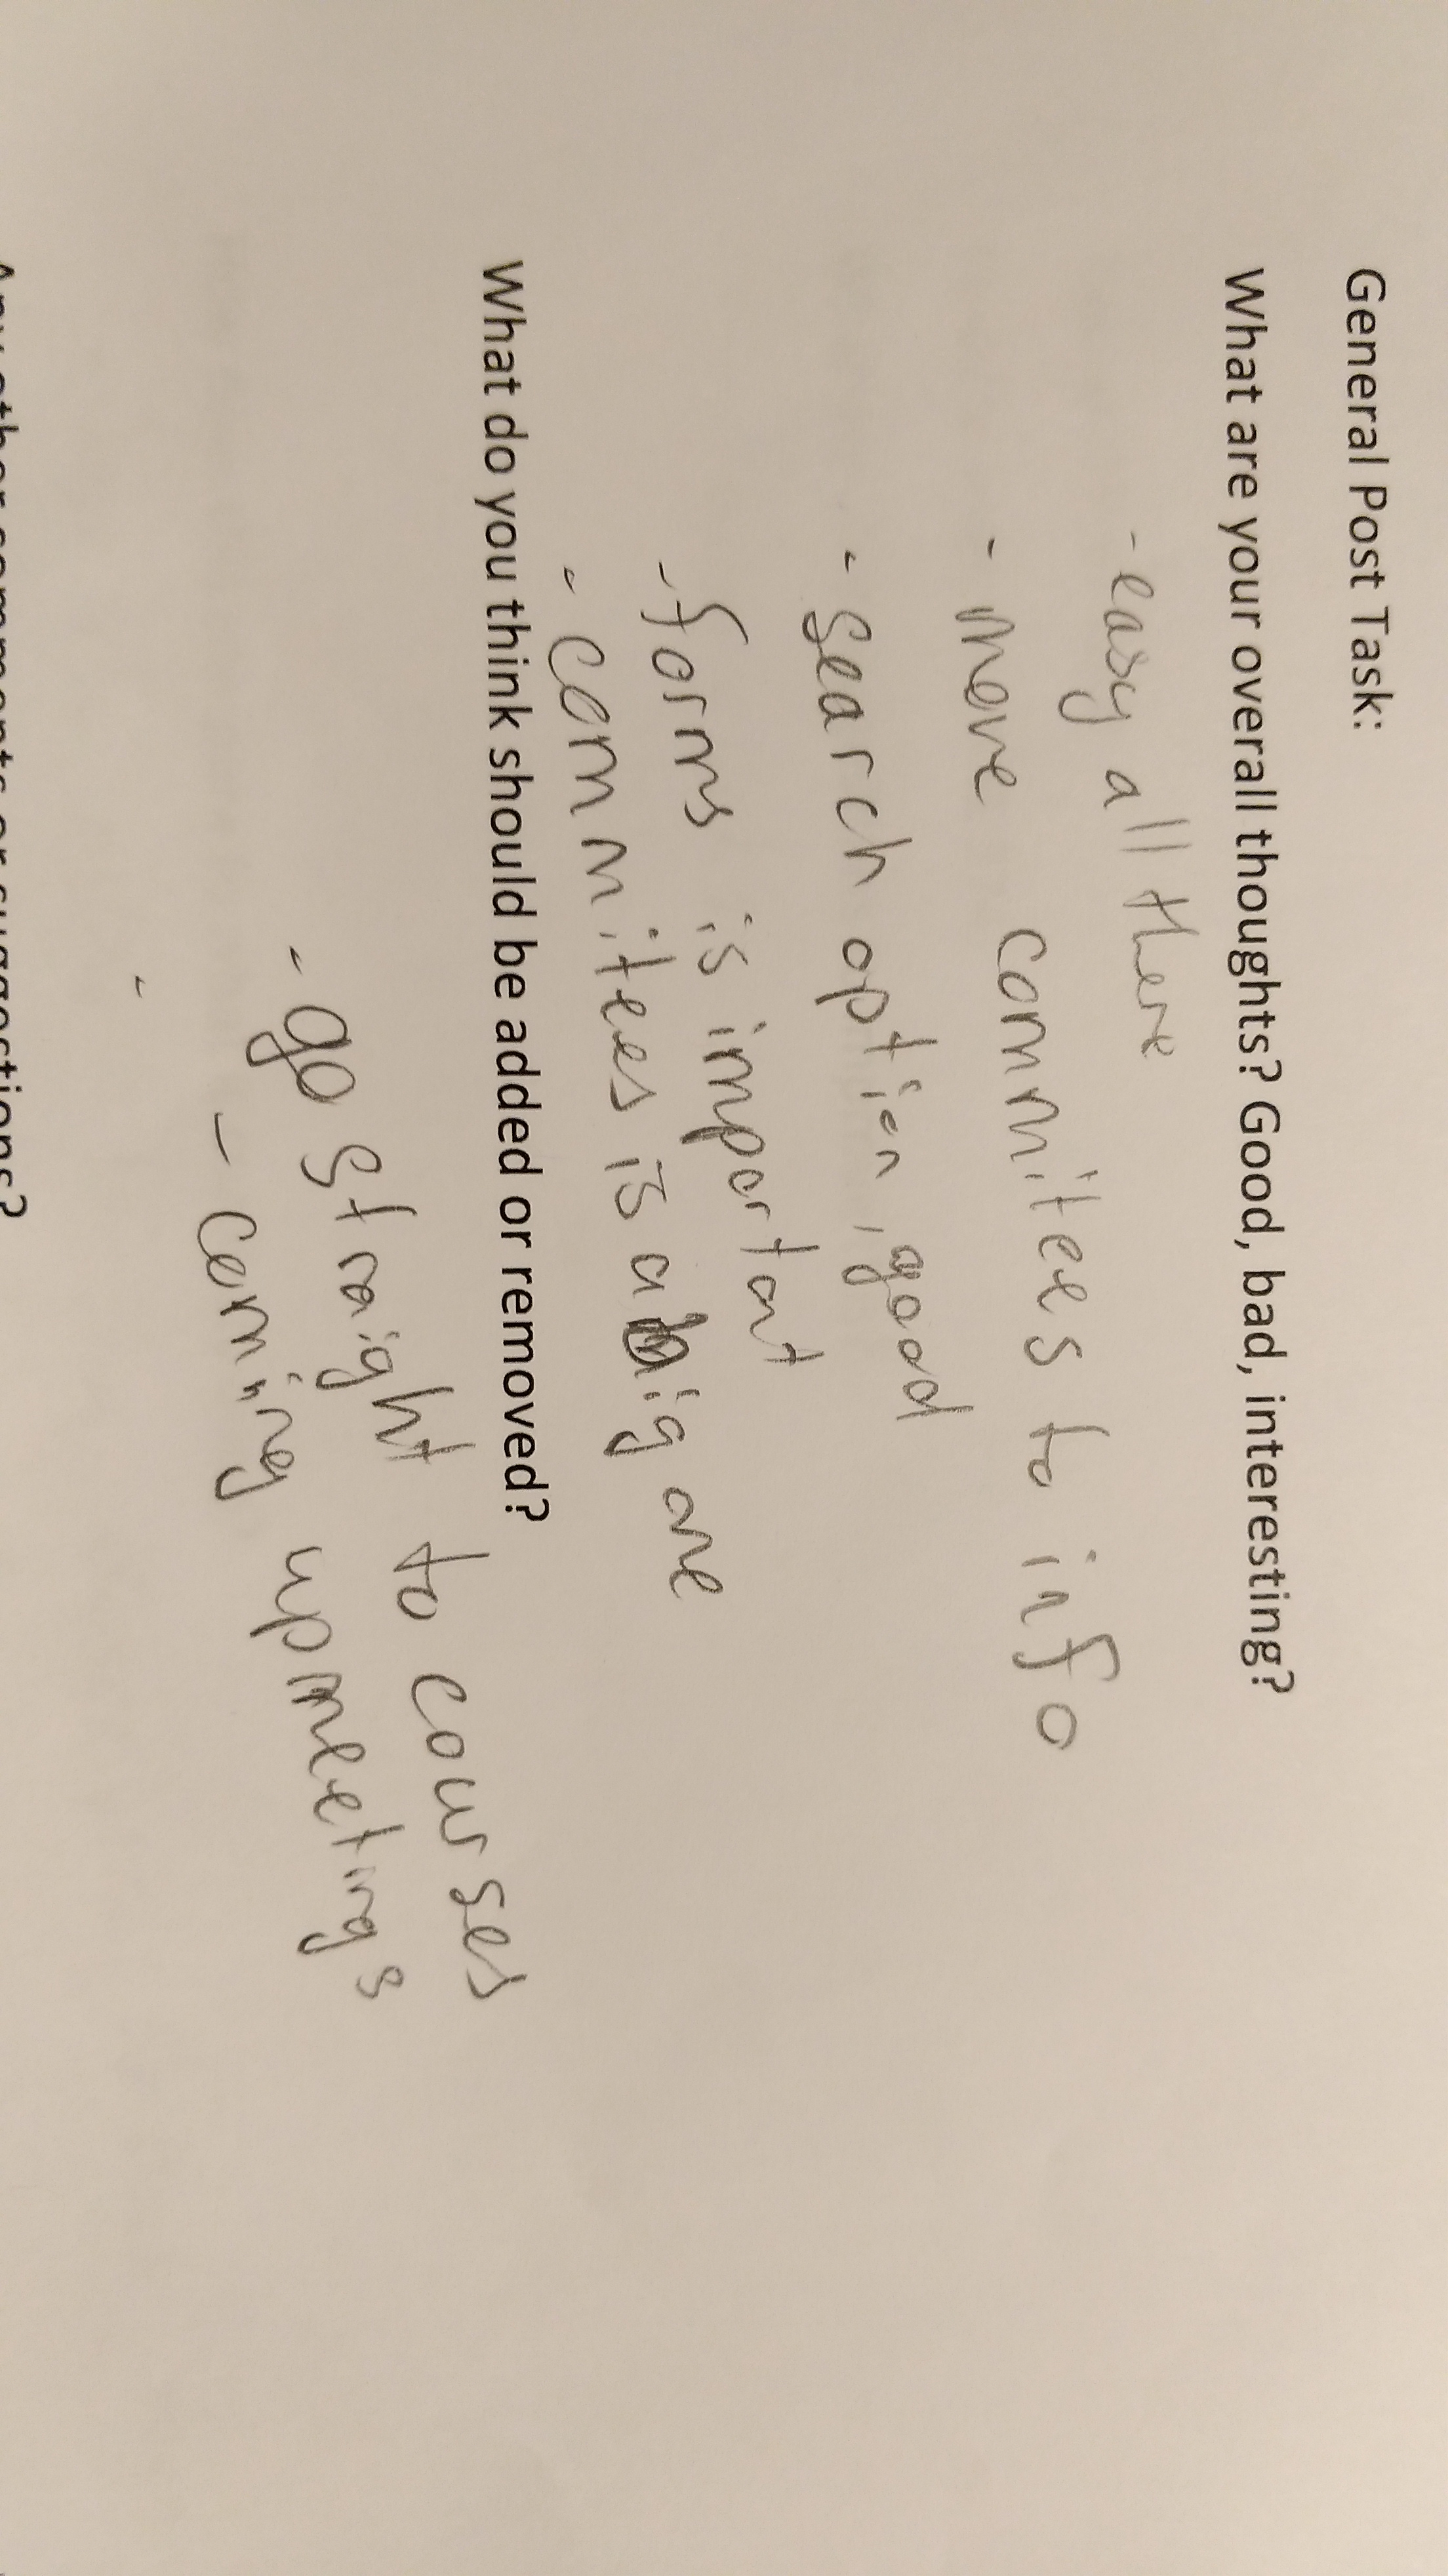 General Post Task:
What are your overall thoughts? Good, bad, interesting?
- easy all there
- move commitees to info
- search option, good
- forms is important
- commitees is a big one
What do you think should be added or removed?
- go straight to courses
- coming up meetings
-
Any other comments or suggestions?